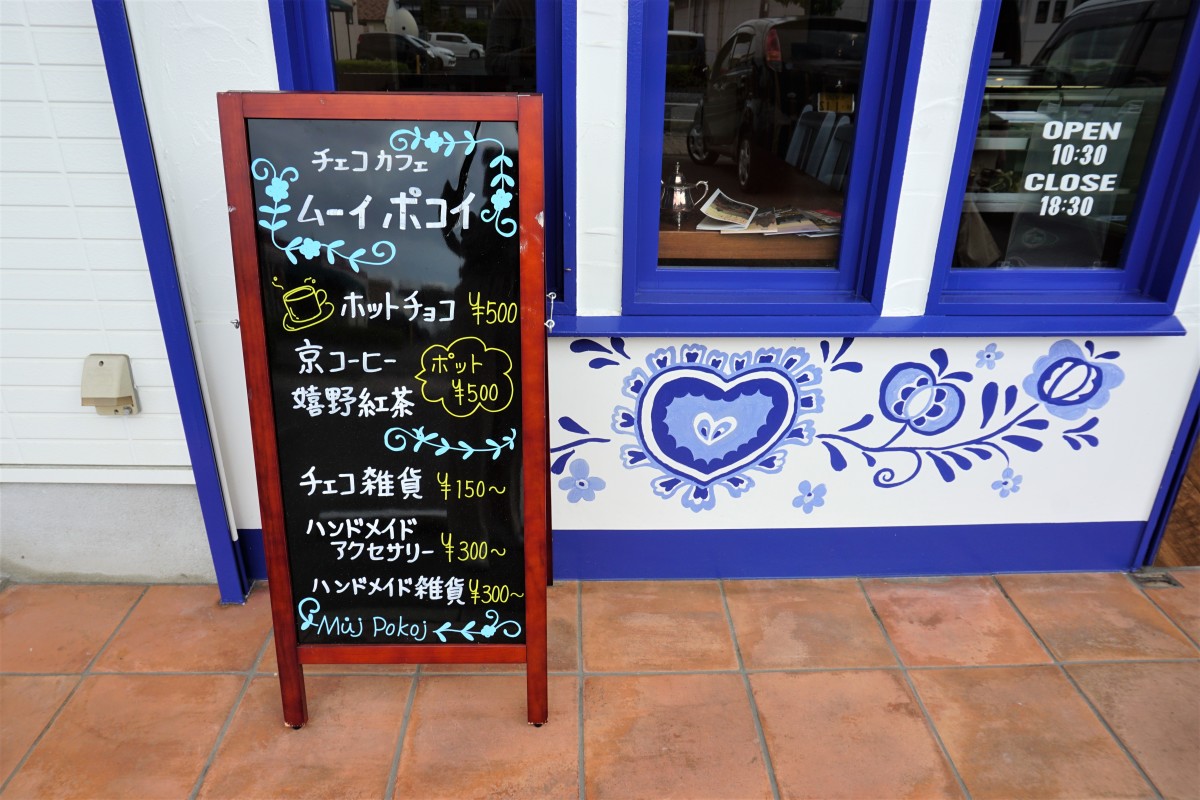 チェコカフェ
ムーイ ポコイ
ホットチョコ ¥500
京コーヒー
嬉野紅茶
ポット
¥500
チェコ雑貨 ¥150〜
ハンドメイド
アクセサリー ¥300〜
ハンドメイド雑貨 ¥300〜
Můj Pokoj
OPEN
10:30
CLOSE
18:30